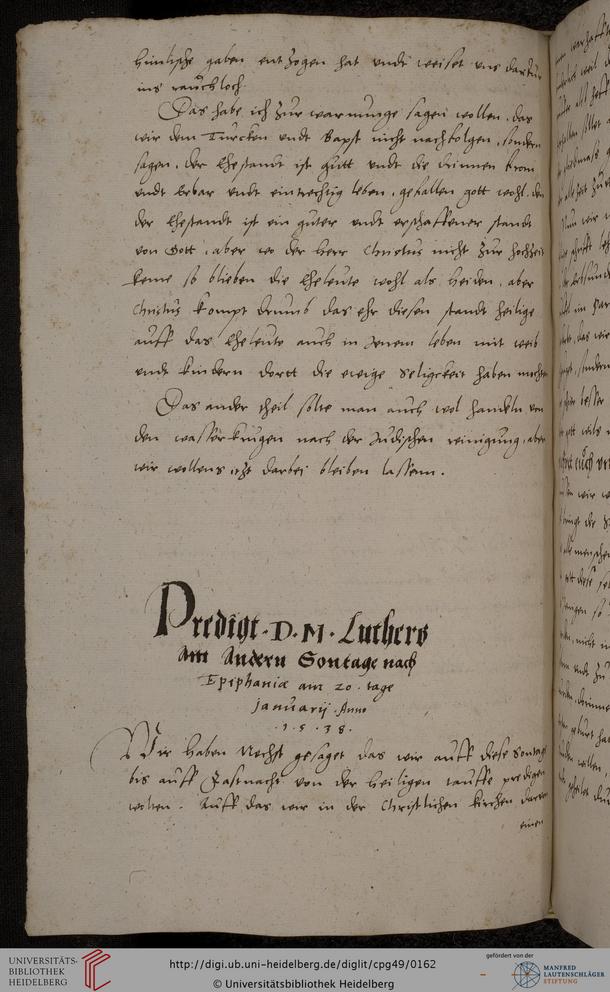 himlische gaben entzogen hat undt weiset uns darfur
ins rauchloch
Das habe ich zur warnunge sagen wollen, das
wir dem Turcken undt Bapst nicht nachfolgen, sondern
sagen, der Ehestandt ist gutt undt die drinnen from
undt erbar undt eintrechtig leben, gefallen gott wohl, den
der Ehestandt ist ein guter undt erschaffener standt
von Gott, aber wo der herr Christus nicht zur hochzeit
keme so blieben die Eheleute wohl als heiden, aber
Christus kompt drumb das ehr diesen standt heilige
auff das Eheleute auch in Jenem leben mit weib
undt kindern dortt die ewige seligckeit haben mochten
Das ander theil solte man auch wol handeln von
den wasserkrugen nach der Judischen reinigung, aber
wir wollens itzt darbei bleiben lassenn.
Predigt . D . M . Luthers
am Andern Sontage nach
Epiphaniæ am 20 . tage
Januarij . Anno
. 1 . 5 . 3 . 8 .
Wir haben Nechst gesaget das wir auff diese Sontage
bis auff Fastnacht von der heiligen tauffe predigen
wolten . Auff das wir in der Christlichen kirchen
einen
UNIVERSITÄTS-
BIBLIOTHEK
HEIDELBERG
http://digi.ub.uni-heidelberg.de/diglit/cpg49/0162
© Universitätsbibliothek Heidelberg
gefördert von der
MANFRED
LAUTENSCHLÄGER
STIFTUNG